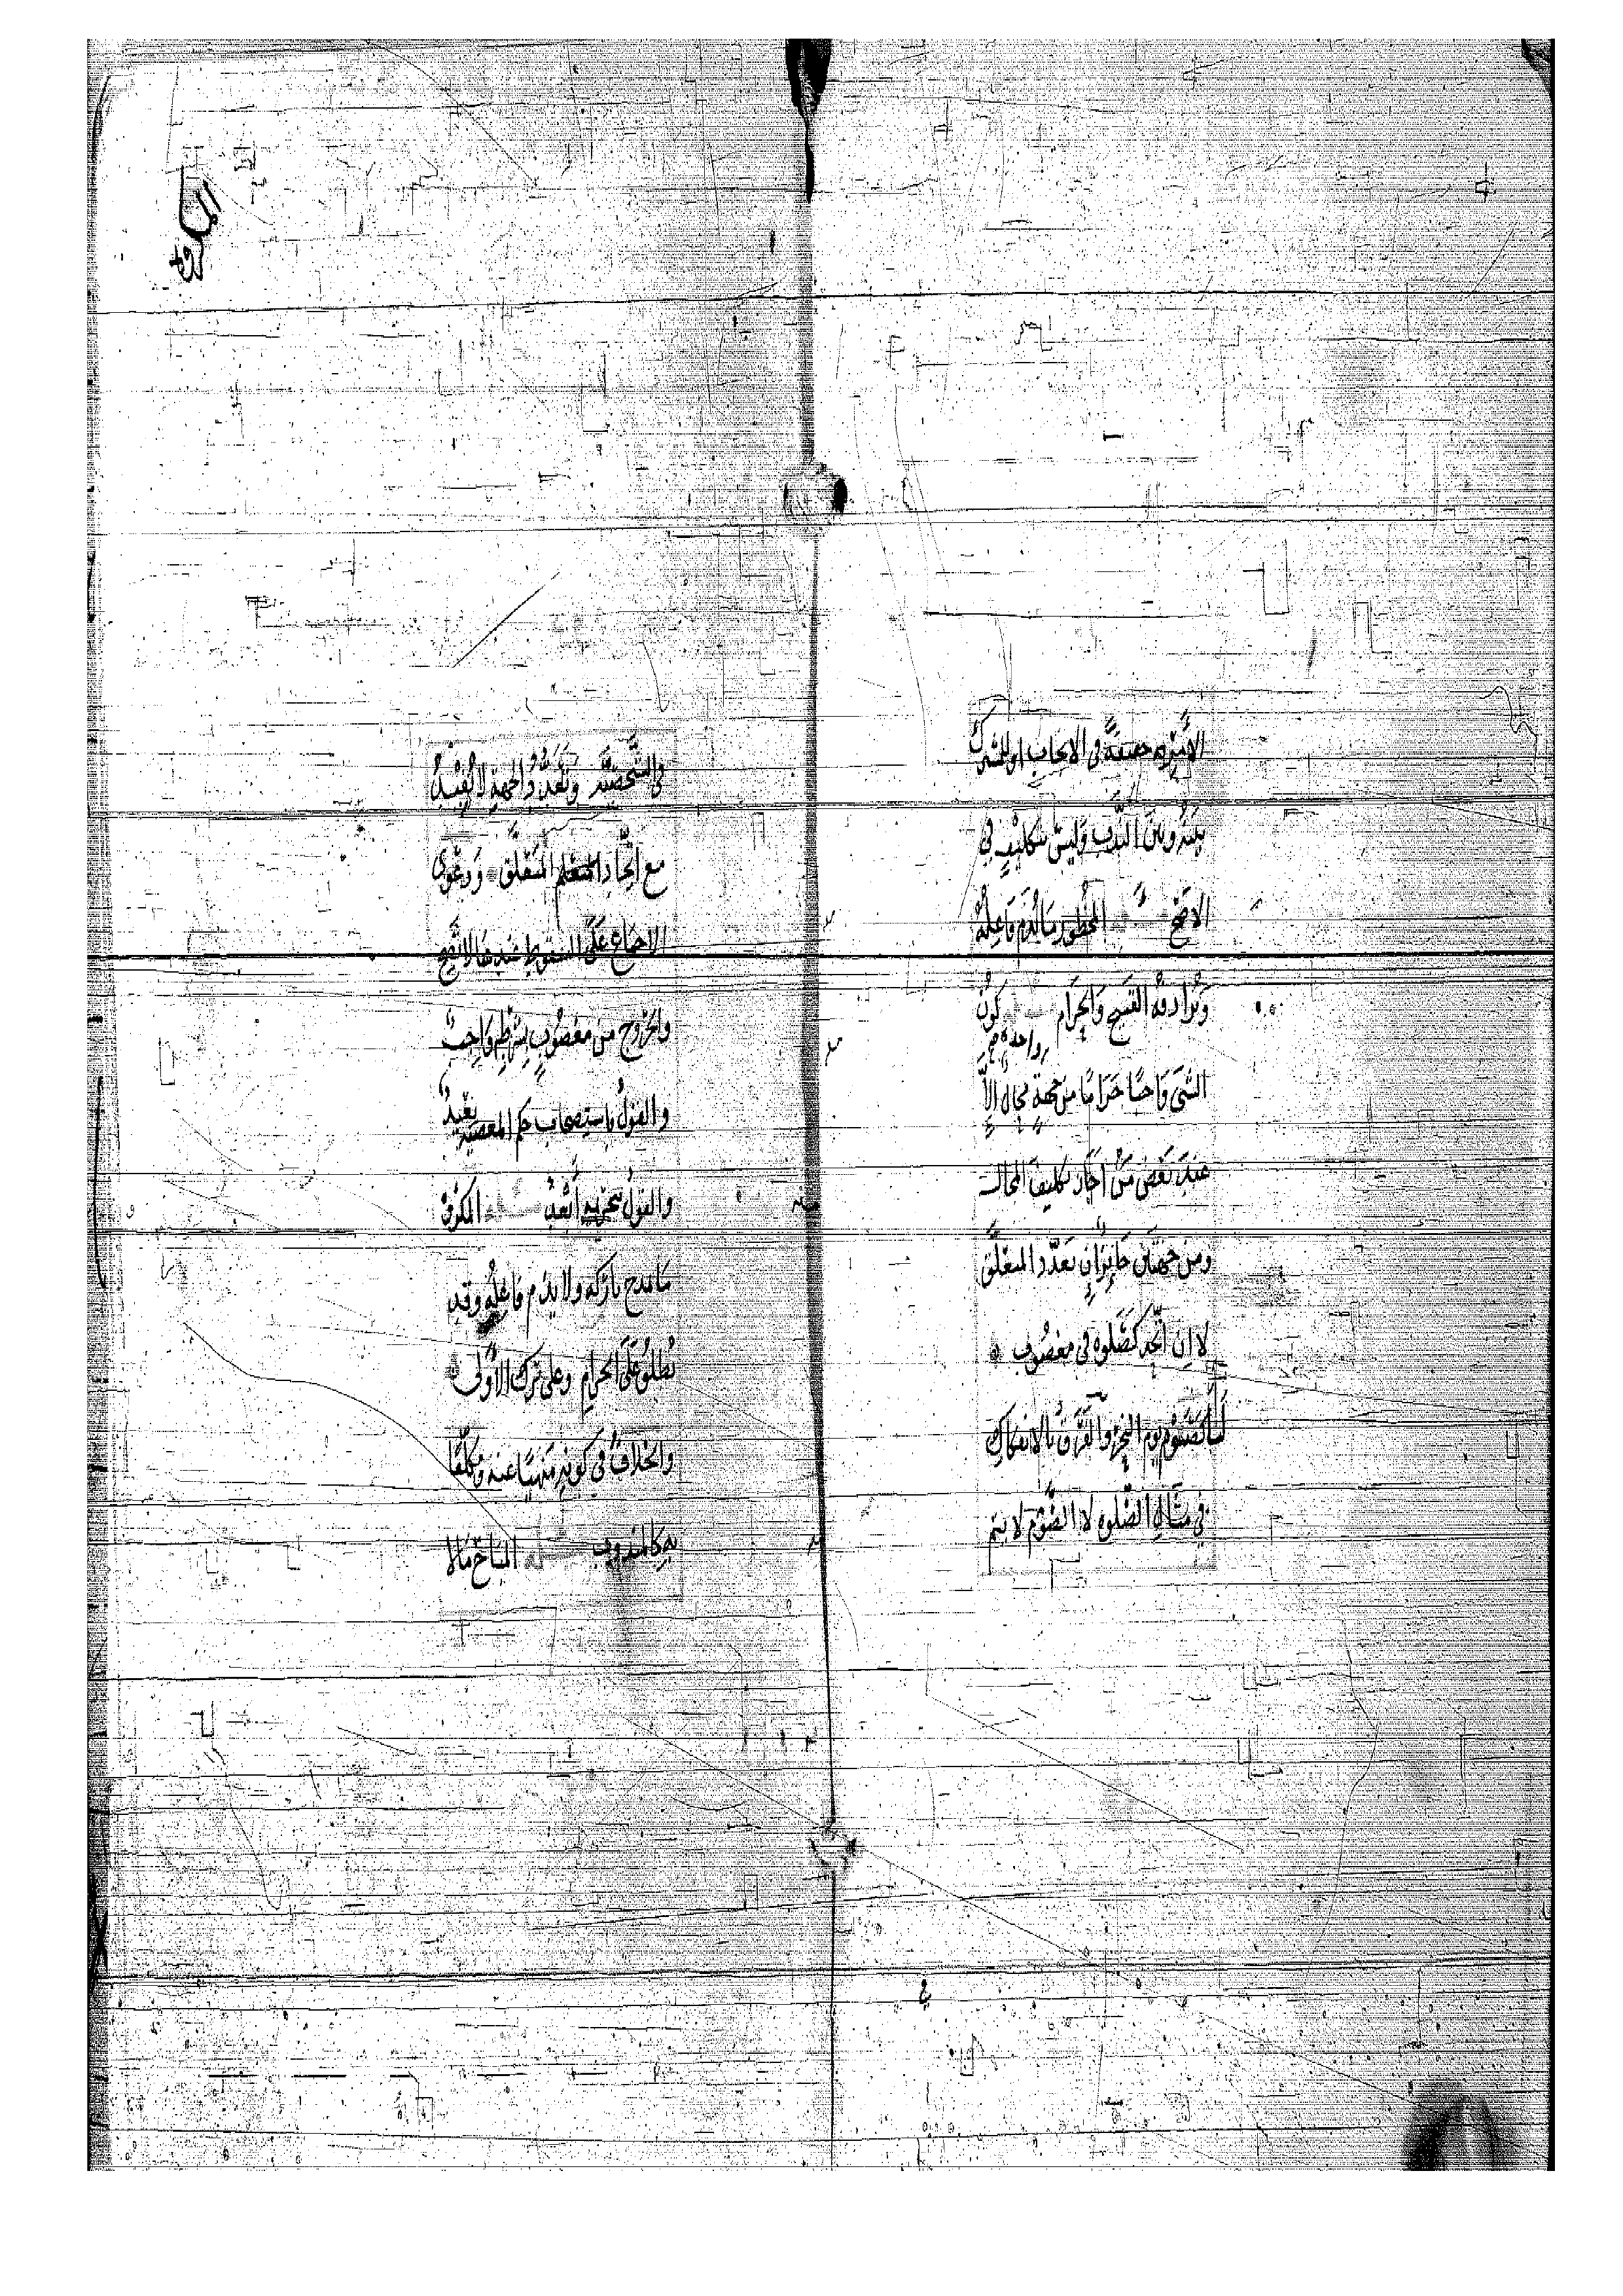 الأمر به حقيقةً في الايجاب او للمشترك
بينه وبين الندب وليس بتكليفٍ في
الاصح المحظور ما يُذم فاعله
ويرادفه القبيح والحرام كون
واحدة
الشيء واجبًا حرامًا من جهة محال إلا
عند بعض من أجاز تكليف المحال
ومن جهتين جايز إن تعدد المتعلق
لا إن اتحد كصلوة في مغصوب
كصوم يوم النحر والفرق بالانفكاك
في مثال الصلوة لا الصوم لا يتم
والشخصية وتعدد الجهة لا يفيد
مع اتحاد المتعلق ودعوى
الاجماع على السقوط عندها لا تصح
والخروج من مغصوبٍ بشرطه واجب
والقول باستصحاب حكم المعصية بعيد
والقول بتحريمه أبعد المكروه
ما مدح تاركه ولا يذم فاعله وقد
يطلق على الحرام وعلى ترك الأولى
والخلاف في كونه منهيًا عنه ومكلفًا
به كالمندوب المباح ما لا
المكروه